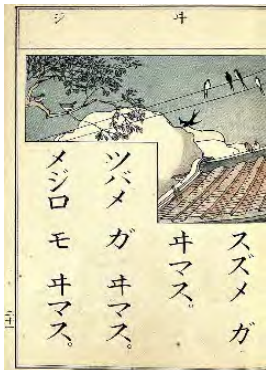 ヰ
ジ
スズメ ガ
ヰマス。
ツバメ ガ ヰマス。
メジロ モ ヰマス。